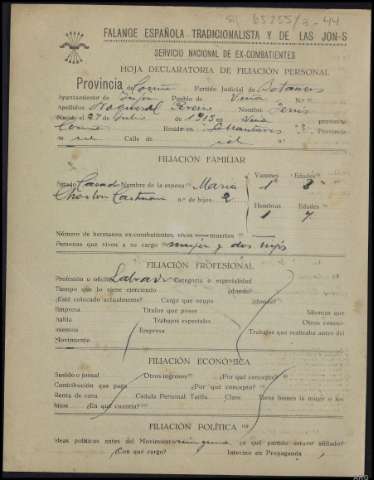 65255/3-44
FALANGE ESPAÑOLA TRADICIONALISTA Y DE LAS JON-S
SERVICIO NACIONAL DE EX-COMBATIENTES
HOJA DECLARATORIA DE FILIACIÓN PERSONAL
Provincia de Partido Judicial de Betanzos
Ayuntamiento de Irijoa Pueblo de Viña
Apellidos Nombre
Nacido el 27 de Julio de 1913 en Viña
Residencia
Calle de id
FILIACIÓN FAMILIAR
Varones Edades
Estado Casado Nombre de la esposa Maria 1 3
n.º de hijos 2 Hembras Edades
1 7
Número de hermanos ex-combatientes, vivos muertos
Personas que viven a su cargo mujer y dos hijos
FILIACIÓN PROFESIONAL
Profesión u oficio Labrador Categoría o especialidad
Tiempo que lo viene ejerciendo ¿dónde?
¿Está colocado actualmente? Cargo que ocupa ¿dónde?
Empresa Títulos que posee Idiomas que
habla Trabajos especiales Otros conoci-
mientos Empresa Trabajos que realizaba antes del
Movimiento
FILIACIÓN ECONÓMICA
Sueldo o jornal Otros ingresos ¿Por qué concepto?
Contribución que paga ¿Por qué concepto?
Renta de casa Cédula Personal Tarifa Clase Tiene bienes la mujer o los
hijos ¿En qué cuantía?
FILIACIÓN POLÍTICA
Ideas políticas antes del Movimiento ninguna ¿a qué partido estuvo afiliado?
¿Con qué cargo? Intervino en Propaganda